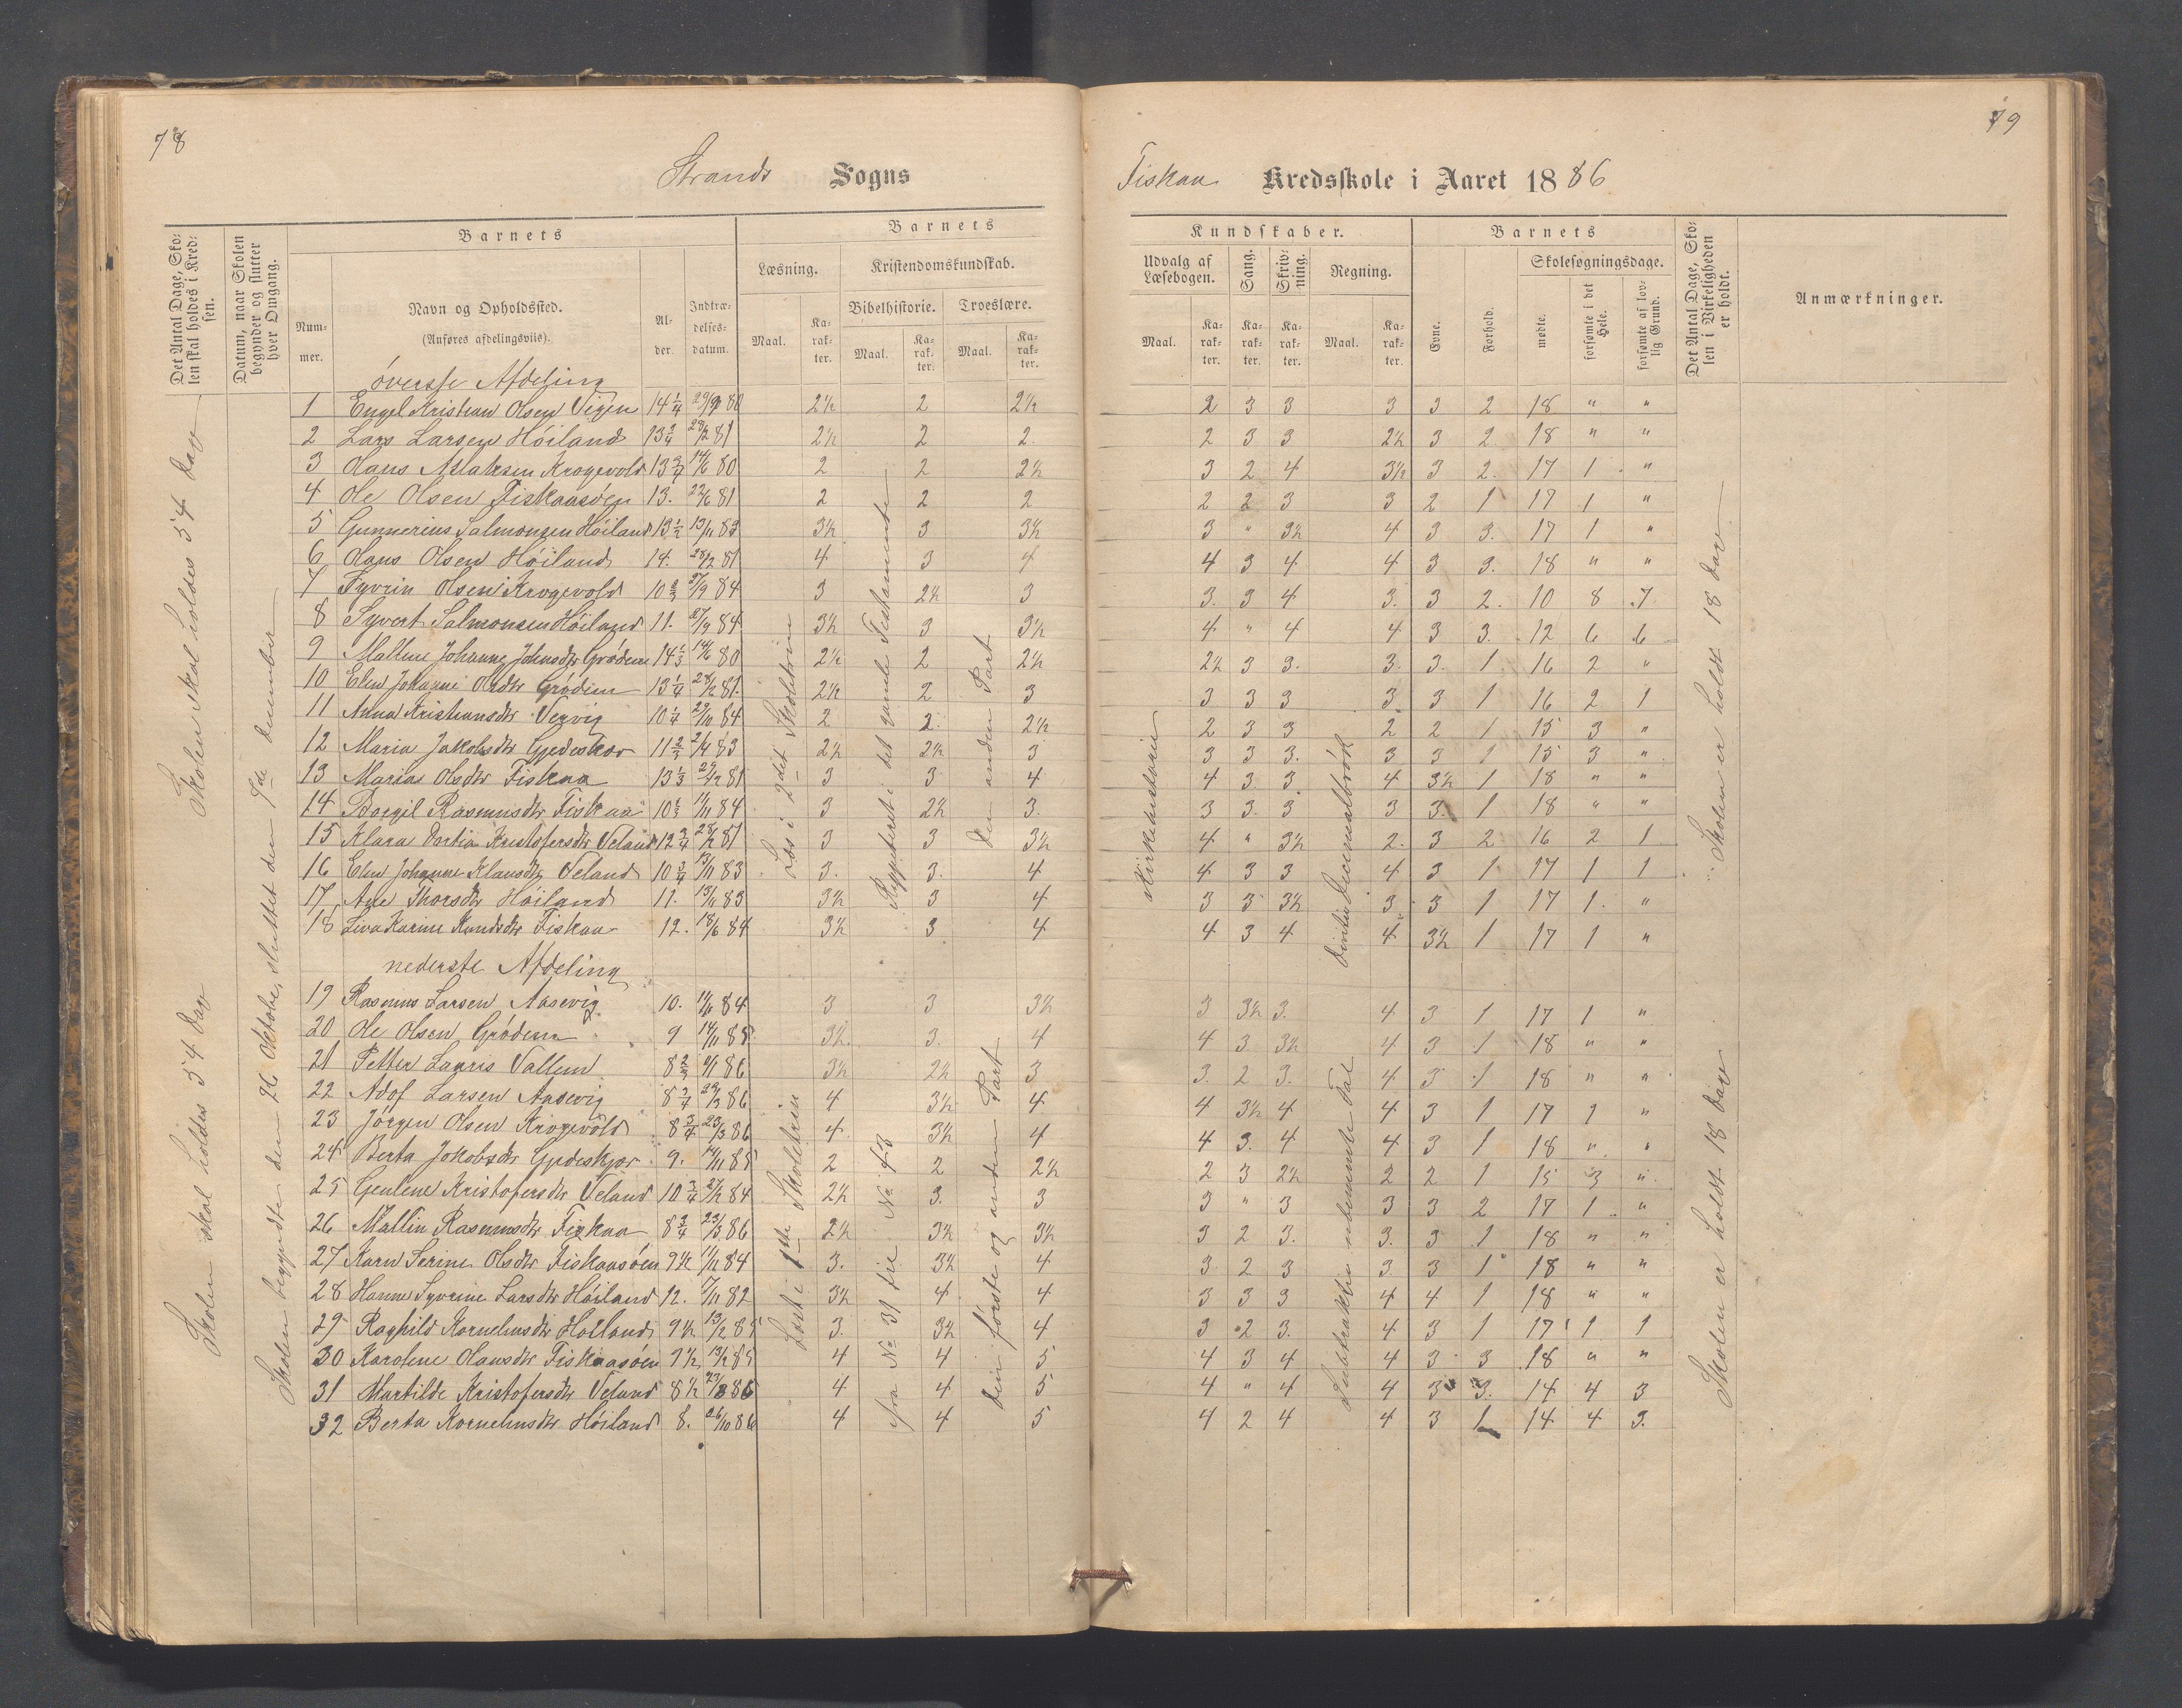 78
79
Strands Sogns
Fiskaa Kredsskole i Aaret 1886
Det Antal Dage, Skolen skal holdes i Kredsen.
Datum, naar Skolen begynder og slutter hver Omgang.
Barnets
Nummer.
Navn og Opholdssted.
(Anføres afdelingsviis).
Alder.
Indtrædelsesdatum.
Barnets
Læsning.
Maal.
Karakter.
Kristendomskundskab.
Bibelhistorie.
Maal.
Karakter.
Troeslære.
Maal.
Karakter.
Kundskaber.
Udvalg af Læsebogen.
Maal.
Karakter.
Sang.
Karakter.
Skrivning.
Karakter.
Regning.
Maal.
Karakter.
Barnets
Evne.
Forhold.
Skolesøgningsdage.
mødte.
forsømte i det Hele.
forsømte af lovlig Grund.
Det Antal Dage, Skolen i Virkeligheden er holdt.
Anmærkninger.
Skolen skal holdes 54 dav
Skolen skal holdes 54 dav
Skolen begyndte den 26 Oktober, sluttet den 9de december
øverste Afdeling
1 Engel Kristian Olsen Vigen 14 1/4 80 2½ 2 2½ 2 3 3 3 3 2 18 " "
2 Lars Larsen Höiland 81 2½ 2 2. 2 3 3 2½ 3 2 18 " "
3 Hans Krogevold 13 3/4 14/6 80 2 2 2½ 3 2 4 3½ 3 2. 17 1 "
4 Ole Olsen Fiskaasøen 13. 22/6 81 2 2 2 2 2 3 3 2 1 17 1 "
5 Gunnerius Salmonsen Höiland 13 1/2 13/11 83 3½ 3 3½ 3 " 3½ 4 3 3. 17 1 "
6 Hans Olsen Höiland 14. 81 4 3 4 4 3 4 4 3 3. 18 " "
7 Syvrin Olsen Krogevold 10 27/9 84 3 2½ 3 3. 3 4 3. 3 2. 10 8 7
8 Syvert Salmonsen Höiland 11. 27/9 84 3½ 3 3½ 4 " 4 4 3 3. 12 6 6
9 Mallene Johanne Johnsdtr Grødem 14 1/3 14/6 80 2½ 2 2½ 2½ 3 3. 3. 3. 1. 16 2 "
10 Elen Johanne Olsdtr Grödem 13 1/4 81. 2½ 2 3 3 3 3 3. 3 1 16 2 1
11 Anna Kristiansdtr Vervig 10 1/4 84 2 2 2½ 2 3 3 2 2 1 15 3 "
12 Maria Jakobsdtr Gjedeskor 11 2/3 83 2½ 2½ 3 3 3 3. 3 3 1 15 3 "
13 Maria Olsdtr Fiskaa 13 1/3 81 3 3 4 4 3 3 4 3½ 1 18 " "
14 Borgil Rasmusdtr Fiskaa 84 3 2½ 3. 3 3. 3 3 3. 1 18 " "
15 Klara Kristofersdtr Veland 12 81 3 3 3½ 4 " 3½ 2. 3 2 16 2 1
16 Elen Johanne Klausdtr Veland 10 3/4 13/11 83 3. 3. 4 4 3 3 4 3 1 17 1 1
17 Ane Thorsdtr Höiland 11. 13/11 83 3½ 3 4 3 3 3½ 3 3 1 17 1. "
18 Liva Karine Knudsdtr Fiskaa 12. 18/6 84 3½ 3 4 4 3 4 4 3½ 1 17 1 "
nederste Afdeling
19 Rasmus Larsen Aasevig 10. 84 3 3 3½ 3 3½ 3. 4 3 1 17 1 "
20 Ole Olsen Grødem 9 14/11 85 3½ 3. 4 4 3 3½ 4 3 1 18 " "
21 Petter Lauris Vallem 8 86 3½ 2½ 3 3. 2 3. 4 3 1 18 " "
22 Adof Larsen Aasevig 8 3/4 86 4 3½ 4 4 3½ 4 4 3 1 17 1 "
23 Jörgen Olsen Krogevold 8 3/4 23/3 86 4 3½ 4 4 3. 4 4 3 1 18 " "
24 Berta Jakobsdtr Gjedeskjor 9. 14/11 85 2 2 2½ 2 3 2½ 2 2 1 15 3 "
25 Genlene Kristofersdtr Veland 10 3/4 84 2½ 3. 3 3 " 3 3 3 2 17 1 "
26 Mallin Rasmusdtr Fiskaa 8 3/4 23/3 86 2½ 3½ 3½ 3 2 3. 3. 3 1 18 " "
27 Karn Serine Olsdtr Fiskaasøen 9½ 84 3. 3½ 4 3 2 3 3 3 1 18 " "
28 Hanne Syvrine Larsdtr Höiland 12. 82 3½ 4 4 3 3 3 4 4 1 18 " "
29 Raghild Kornelinsdtr Holland 9½ 13/2 85 3. 3½ 4 3 2 3. 4 3 1 17 1 1
30 Karolene Hansdtr Fiskaasøen 9½ 13/2 85 4 4 5 4 3 4 4 3 3 18 " "
31 Martilde Kristofersdtr Veland 8½ 23/3 86 4 4 5 4 " 4 4 3 3. 14 4 3
32 Berta Kornelinsdtr Höiland 8. 26/10 86 4 4 5 4 2 4 4 3 1 14 4 3.
Læs i 2det Skoletrin
Reppeteret i det gamle Testamente
den anden Part
Kirkehistorien
Skolen er holdt 18 dav
Læst i 1ste Skoletrin
fra No 31 til No 43
den første og anden Part
Subtraktion ubenævnte Tal
Skolen er holdt 18 dav